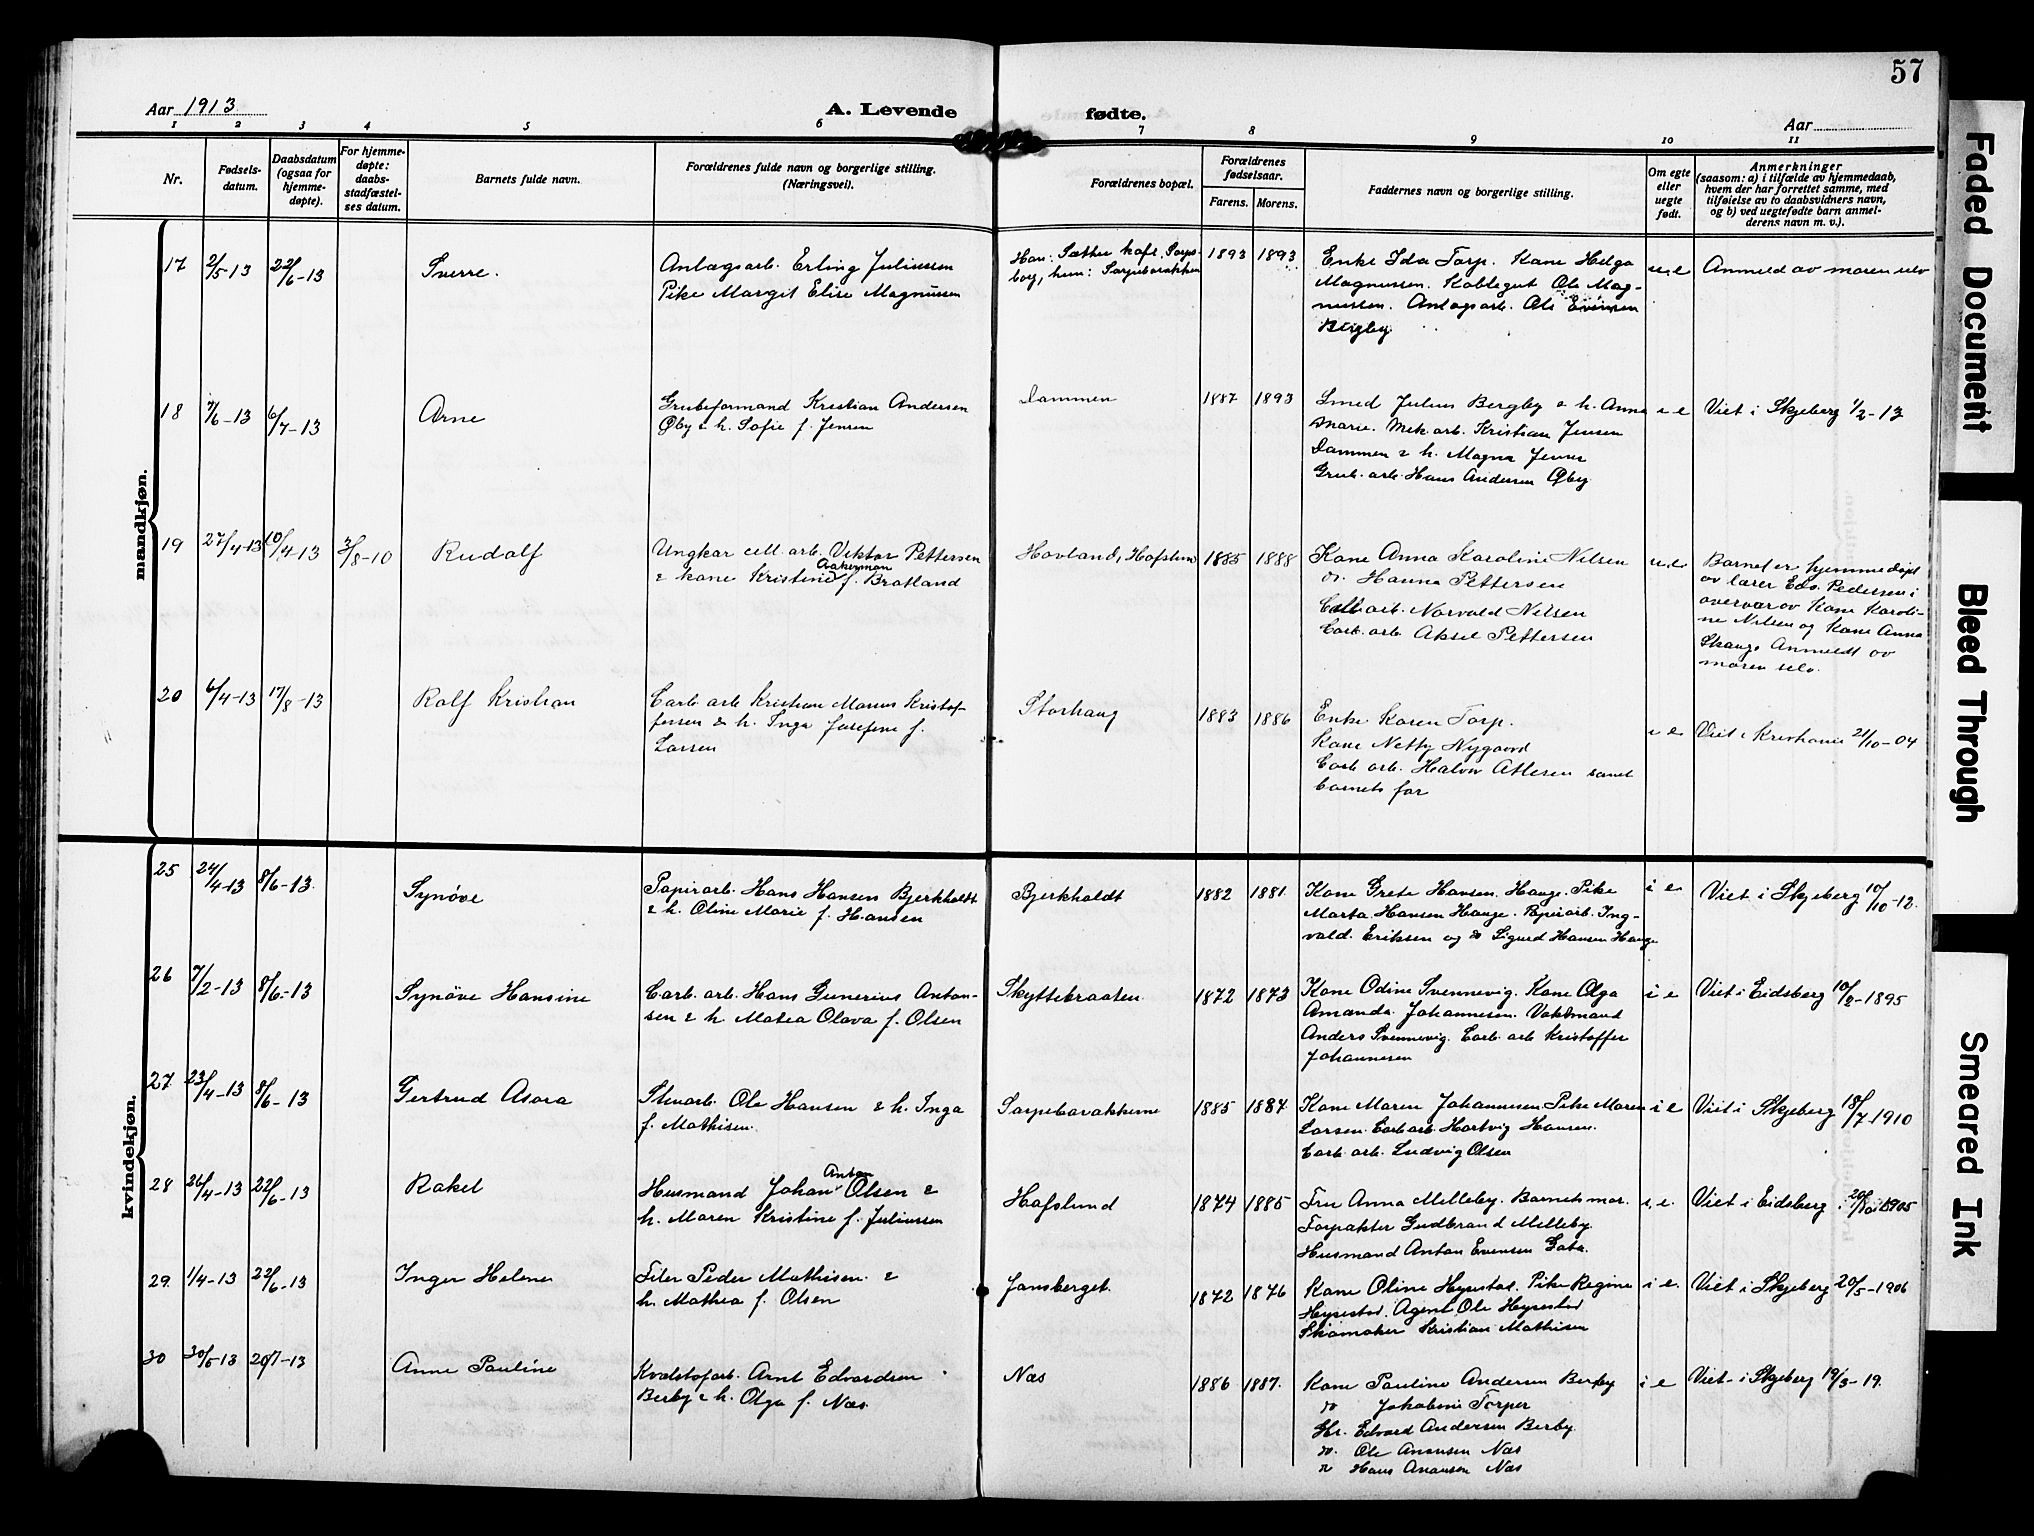 57
Aar 1913
A. Levende
fødte.
Aar
1 2 3 4 5 6 7 8 9 10 11
Nr.
Fødsels-
datum.
Daabsdatum
(ogsaa for
hjemme-
døpte).
For hjemme-
døpte:
daabs-
stadfæstel-
ses datum.
Barnets fulde navn.
Forældrenes fulde navn og borgerlige stilling.
(Næringsvei).
Forældrenes bopæl.
Forældrenes
fødselsaar.
Farens. Morens.
Faddernes navn og borgerlige stilling.
Om egte
eller
uegte
født.
Anmerkninger
(saasom: a) i tilfælde av hjemmedaab,
hvem der har forrettet samme, med
tilføielse av to daabsvidners navn,
og b) ved uegtefødte barn anmel-
derens navn m. v.).
mandkjøn.
17 2/5-13 22/6-13 Sverre.
Anlægsarb. Erling Juliussen
Pike Margit Elise Magnussen
Han: Sæther kafe, Sarps-
borg, hun: Sarpebarakken
1893 1893
Enke Ida Torp. Kone Helga
Magnussen. Koblegut Ole Mag-
nussen. Anlægsarb. Ole Evensen
Bergby.
u.e Anmeld av moren selv
18 7/6-13 6/7-13 Arne
Grubeformand Kristian Andersen
Øby & h. Sofie f. Jensen
Dammen
1887 1893
Smed Julius Bergby & h. Anna
Marie. Mek. arb. Kristian Jensen
Dammen & h. Magna Jensen
Grub. arb. Hans Andersen Øby
i e Viet i Skjeberg 1/2-13
19 27/4-13 10/4-13 3/8-10 Rudolf
Ungkar cell. arb. Viktor Pettersen
Aakerman
& kone Kristine f. Bratland
Hovland, Hafslund
1885 1888
Kone Anna Karoline Nilsen
do. Hanna Pettersen
Cell. arb. Norvald Nilsen
Carb. arb. Aksel Pettersen
u.e
Barnet er hjemmedøpt
av lærer Edv. Pedersen i
overvær av Kone Karoli-
ne Nilsen og Kone Anna
Skauge Anmeldt av
moren selv.
20 6/4-13 17/8-13 Rolf Kristian
Carb. arb. Kristian Marius Kristof-
fersen & h. Inga Josefine f.
Larsen
Storhaug
1883 1886
Enke Karen Torp.
Kone Netty Nygaard
Carb. arb. Halvor Atlesen samt
barnets far
i e Viet i Kristiania 21/10-04
kvindekjøn.
25 24/4-13 8/6-13. Synøve
Papirarb. Hans Hansen Bjerkholdt
& h. Oline Marie f. Hansen
Bjerkholdt
1882 1881
Kone Grete Hansen Hauge. Pike
Marta Hansen Hauge. Papirarb. Ing-
vald. Eriksen og do Sigurd Hansen Hauge
i e Viet i Skjeberg 10/10-12.
26 7/2-13 8/6-13 Synøve Hansine
Carb. arb. Hans Gunerius Anton-
sen & h. Matea Olava f. Olsen
Skyttebraaten
1872 1873
Kone Odine Svennevig. Kone Olga
Amanda Johannesen. Vaktmand
Anders Svennevig. Carb. arb Kristoffer
Johannesen
i e Viet i Eidsberg 10/2-1895
27 23/4-13 8/6-13 Gertrud Asora
Stenarb. Ole Hansen & h. Inga
f. Mathisen.
Sarpebarakkerne
1885 1887
Kone Maren Johannesen. Pike Maren
Larsen. Carb arb. Hartvig Hansen.
Carb. arb. Ludvig Olsen
i e Viet i Skjeberg 18/7-1910
28 26/4-13 22/6-13 Rakel
Anton
Husmand Johan Olsen &
h. Maren Kristine f. Juliussen
Hafslund
1874 1885
Fru Anna Melleby. Barnets mor.
Forpakter Gudbrand Melleby.
Husmand Anton Evensen Gata.
i. e. Viet i Eidsberg 1905
29 1/4-13 22/6-13 Inger Helene
Filer Peder Mathisen &
h. Mathea f. Olsen
Jonsberget.
1872 1876
Kone Oline Høyestad. Pike Regine
Høyestad. Agent Ole Høyestad
Skomaker Kristian Mathisen
i e. Viet i Skjeberg 20/5-1906
30 30/5-13 20/7-13 Anne Pauline
Kvælstofarb. Arnt Edvardsen
Berby & h. Olga f. Næs.
Næs
1886 1887.
Kone Pauline Andersen Berby
do Jakobine Torper
Gr. Edvard Andersen Berby.
do. Ole Anansen Næs
do Hans Anansen Næs
i e Viet i Skjeberg
Faded Document
Bleed Through
Smeared Ink